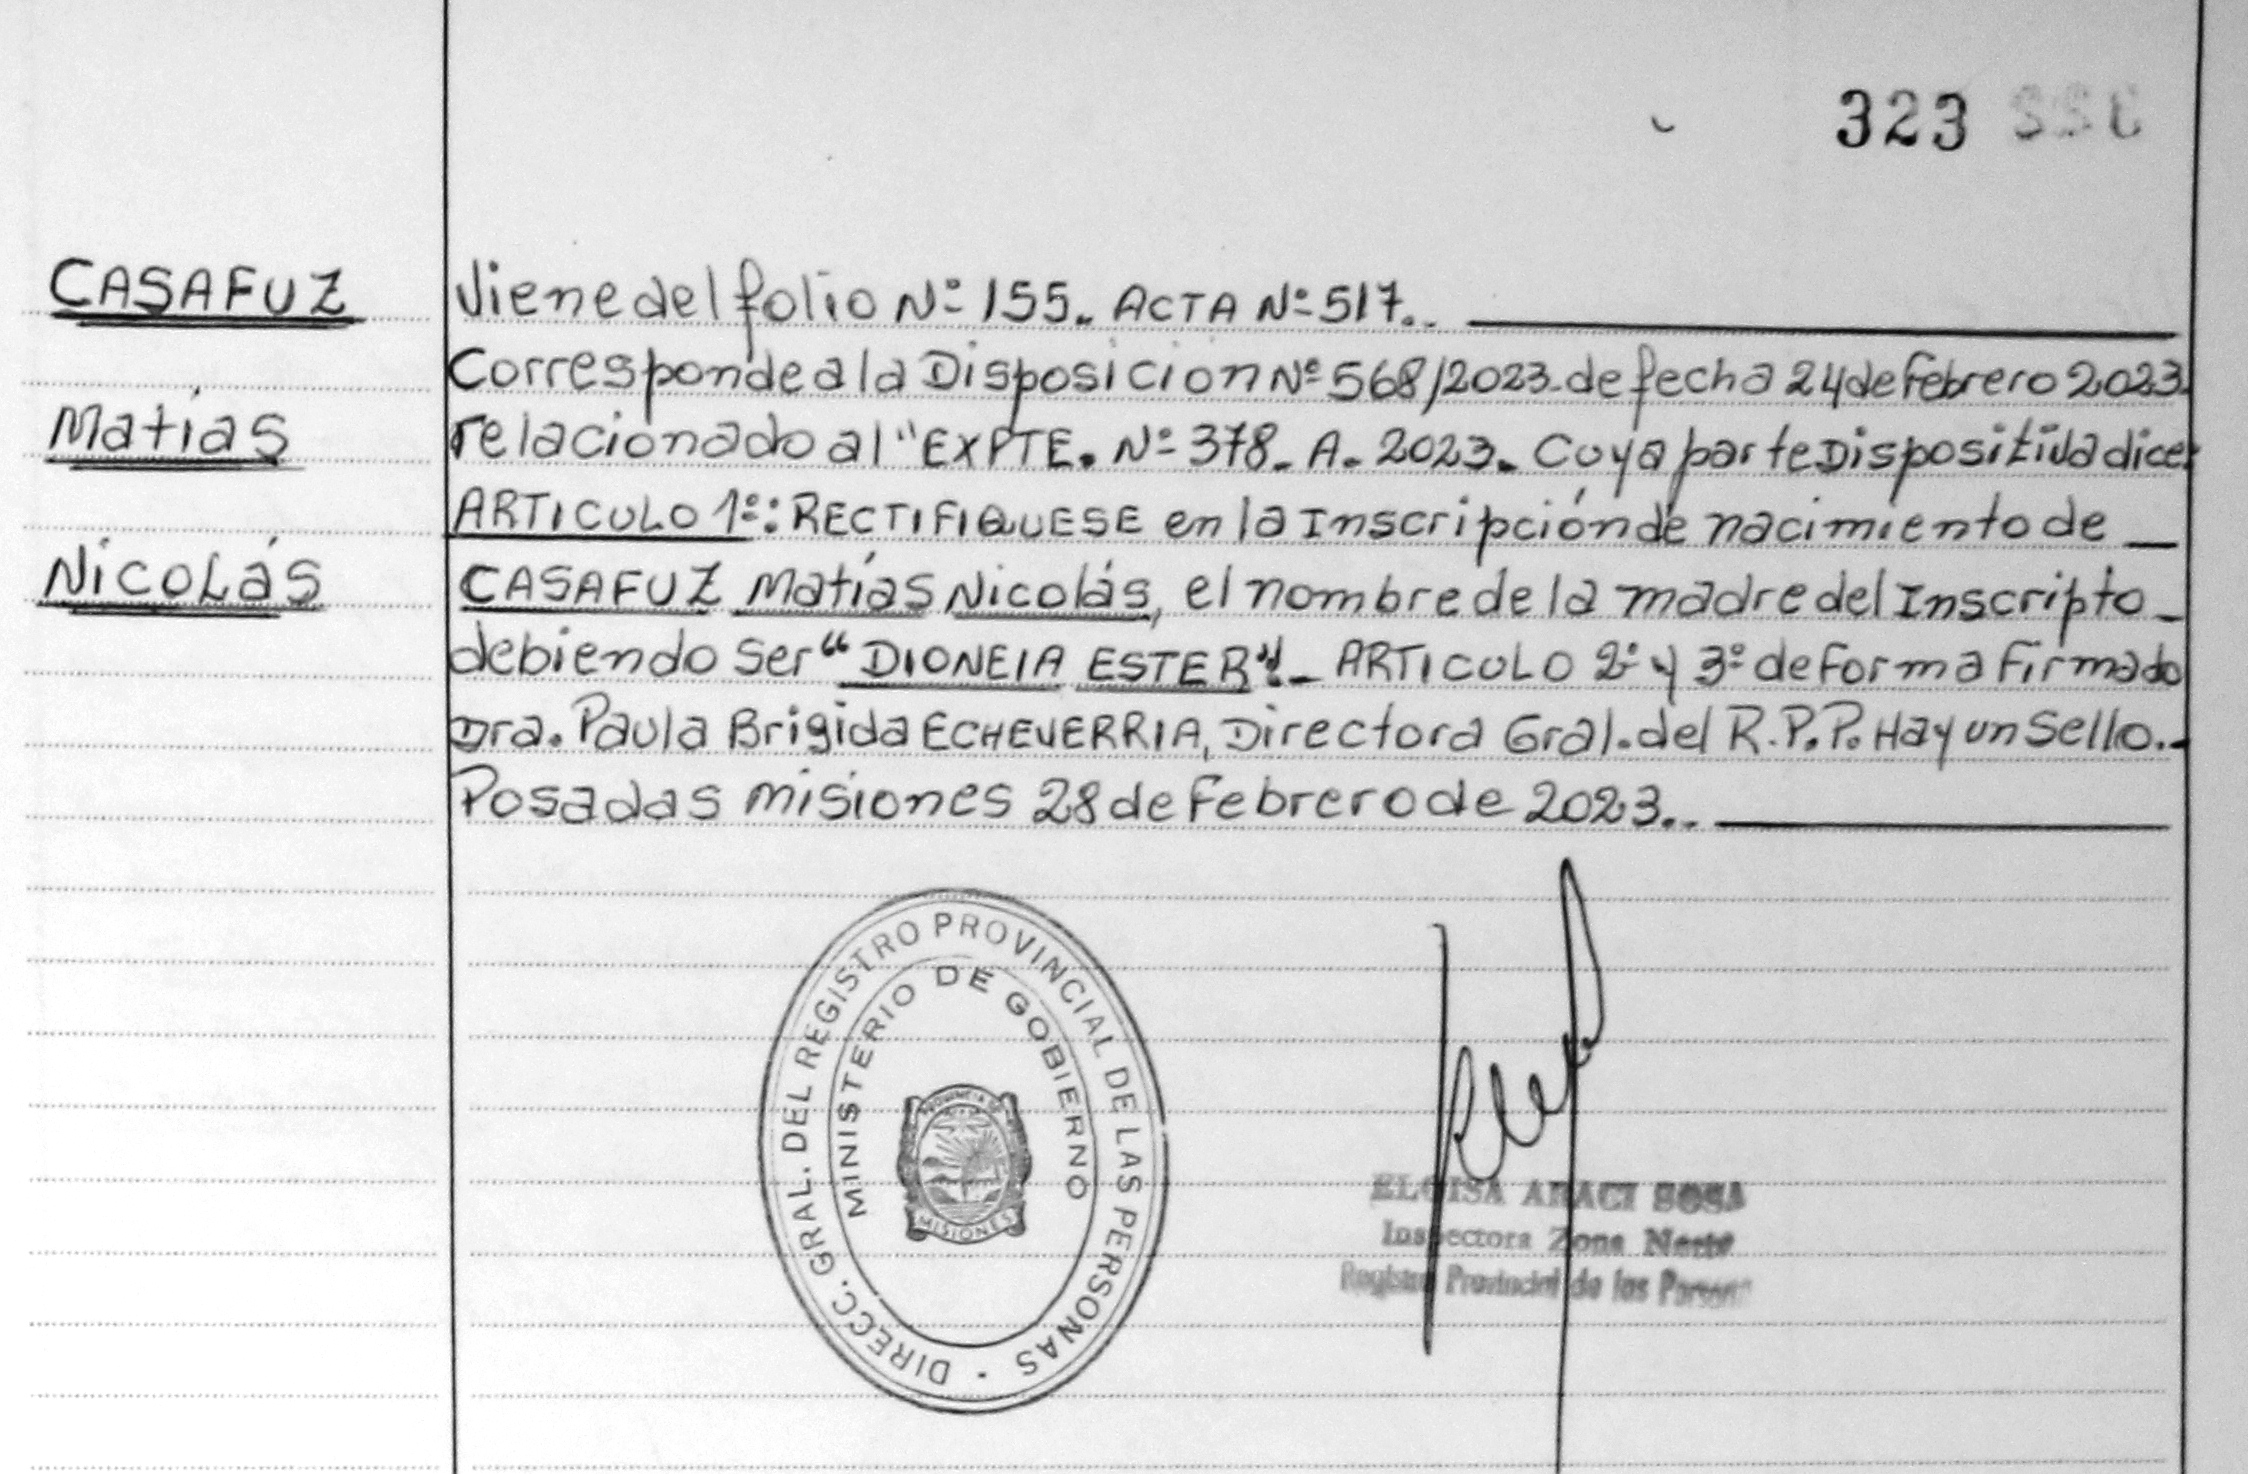 323
CASAFUZ
Matías
Nicolás
Viene del folio Nº 155. ACTA Nº 517..
Corresponde a la Disposición Nº 568/2023. de fecha 24 de Febrero 2023.
relacionado al "EXPTE. Nº 378. A. 2023. Cuya parte Dispositiva dice:
ARTICULO 1º: RECTIFIQUESE en la Inscripción de nacimiento de
CASAFUZ Matías Nicolás, el nombre de la madre del Inscripto
debiendo ser "DIONEIA ESTER". ARTICULO 2º y 3º de Forma Firmado
Dra. Paula Brigida ECHEVERRIA, Directora Gral. del R.P.P. Hay un Sello..
Posadas misiones 28 de Febrero de 2023..
DIRECC. GRAL. DEL REGISTRO PROVINCIAL DE LAS PERSONAS
MINISTERIO DE GOBIERNO
PROVINCIA DE
MISIONES
ELOISA ARACI SOSA
Inspectora Zona Norte
Registro Provincial de las